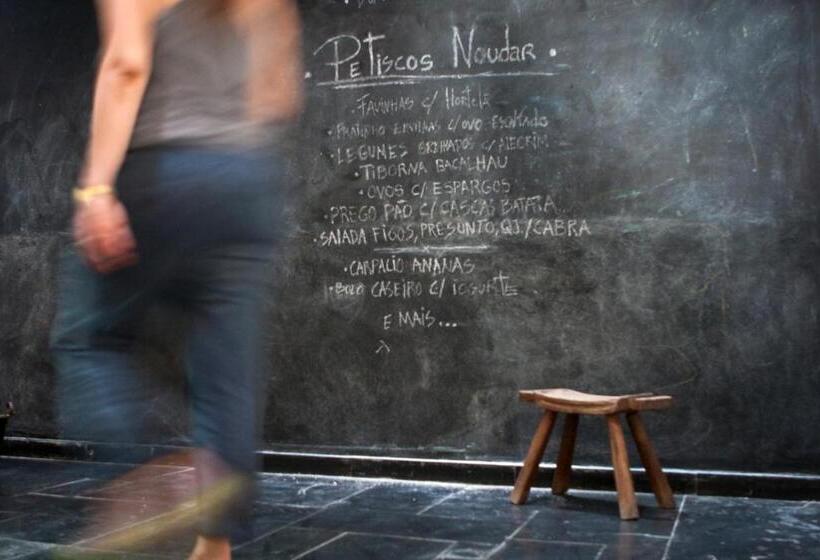 • Petiscos Noudar •
• FAVINHAS C/ HORTELÃ
ERVILHAS C/OVO ESCALFADO
• LEGUMES GRELHADOS C/ALECRIM
• TIBORNA BACALHAU
• OVOS C/ ESPARGOS
• PREGO PÃO C/ CASCAS BATATA
• SALADA FIGOS, PRESUNTO, QJ/CABRA
• CARPACIO ANANAS
• BOLO CASEIRO C/ IOGURTE
E MAIS...